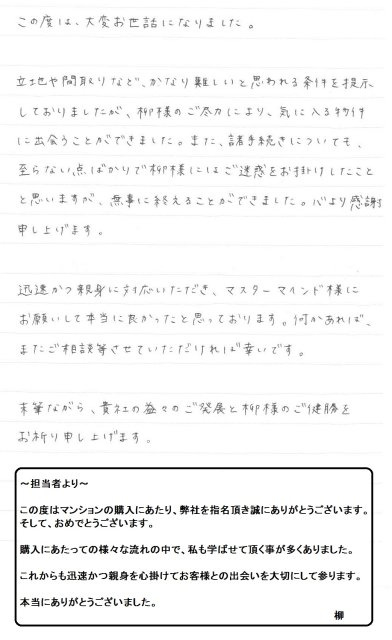 この度は、大変お世話になりました。
立地や間取りなど、かなり難しいと思われる条件を提示
しておりましたが、柳様のご尽力により、気に入る物件
に出会うことができました。また、諸手続きについても、
至らない点ばかりで柳様にはご迷惑をお掛けしたこと
と思いますが、無事に終えることができました。心より感謝
申し上げます。
迅速かつ親身に対応いただき、マスターマインド様に
お願いして本当に良かったと思っております。何かあれば、
またご相談等させていただければ幸いです。
末筆ながら、貴社の益々のご発展と柳様のご健勝を
お祈り申し上げます。
～担当者より～
この度はマンションの購入にあたり、弊社を指名頂き誠にありがとうございます。
そして、おめでとうございます。
購入にあたっての様々な流れの中で、私も学ばせて頂く事が多くありました。
これからも迅速かつ親身を心掛けてお客様との出会いを大切にして参ります。
本当にありがとうございました。
柳